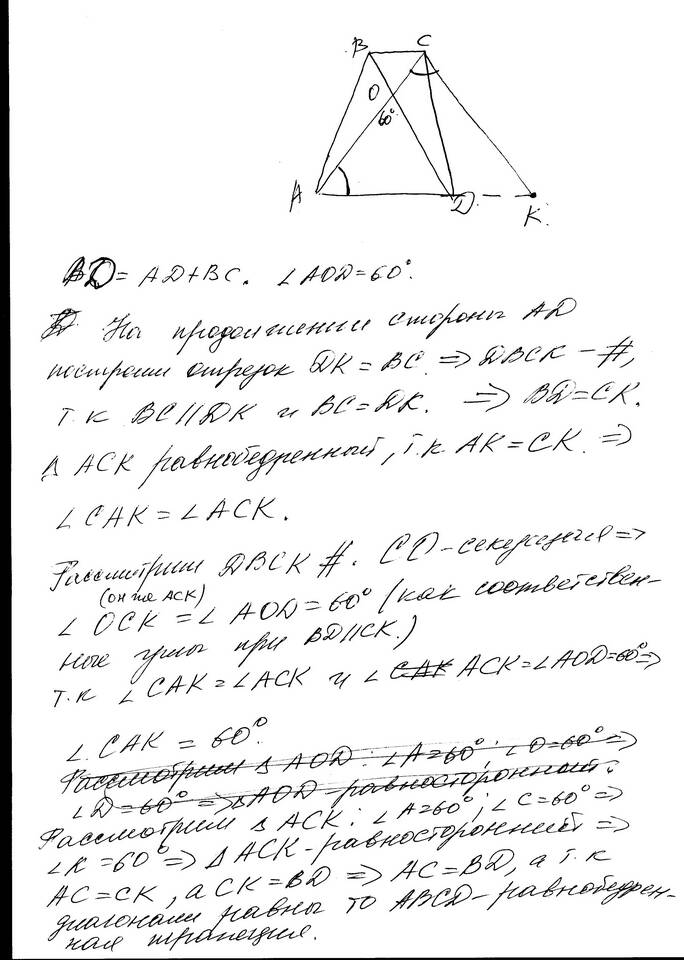 B C
O
60°
A D K.
BD = AD + BC. ∠AOD = 60°.
На продолжении стороны AD
построим отрезок DK = BC. ⇒ DBCK - #,
т.к BC // DK и BC = DK. ⇒ BD = CK.
Δ ACK равнобедренный, т.к AK = CK. ⇒
∠CAK = ∠ACK.
Рассмотрим DBCK #. CO - секущая ⇒
(он же ACK)
∠OCK = ∠AOD = 60° (как соответствен-
ные углы при BD//CK.)
т.к ∠CAK = ∠ACK и ∠ CAK ACK = ∠AOD = 60° ⇒
∠CAK = 60°.
Рассмотрим Δ AOD: ∠A = 60°; ∠O = 60° ⇒
∠D = 60° ⇒ ΔAOD - равносторонний.
Рассмотрим Δ ACK: ∠A = 60°; ∠C = 60° ⇒
∠K = 60° ⇒ Δ ACK - равносторонний ⇒
AC = CK, а CK = BD ⇒ AC = BD, а т.к
диагонали равны то ABCD - равнобедрен-
ная трапеция.